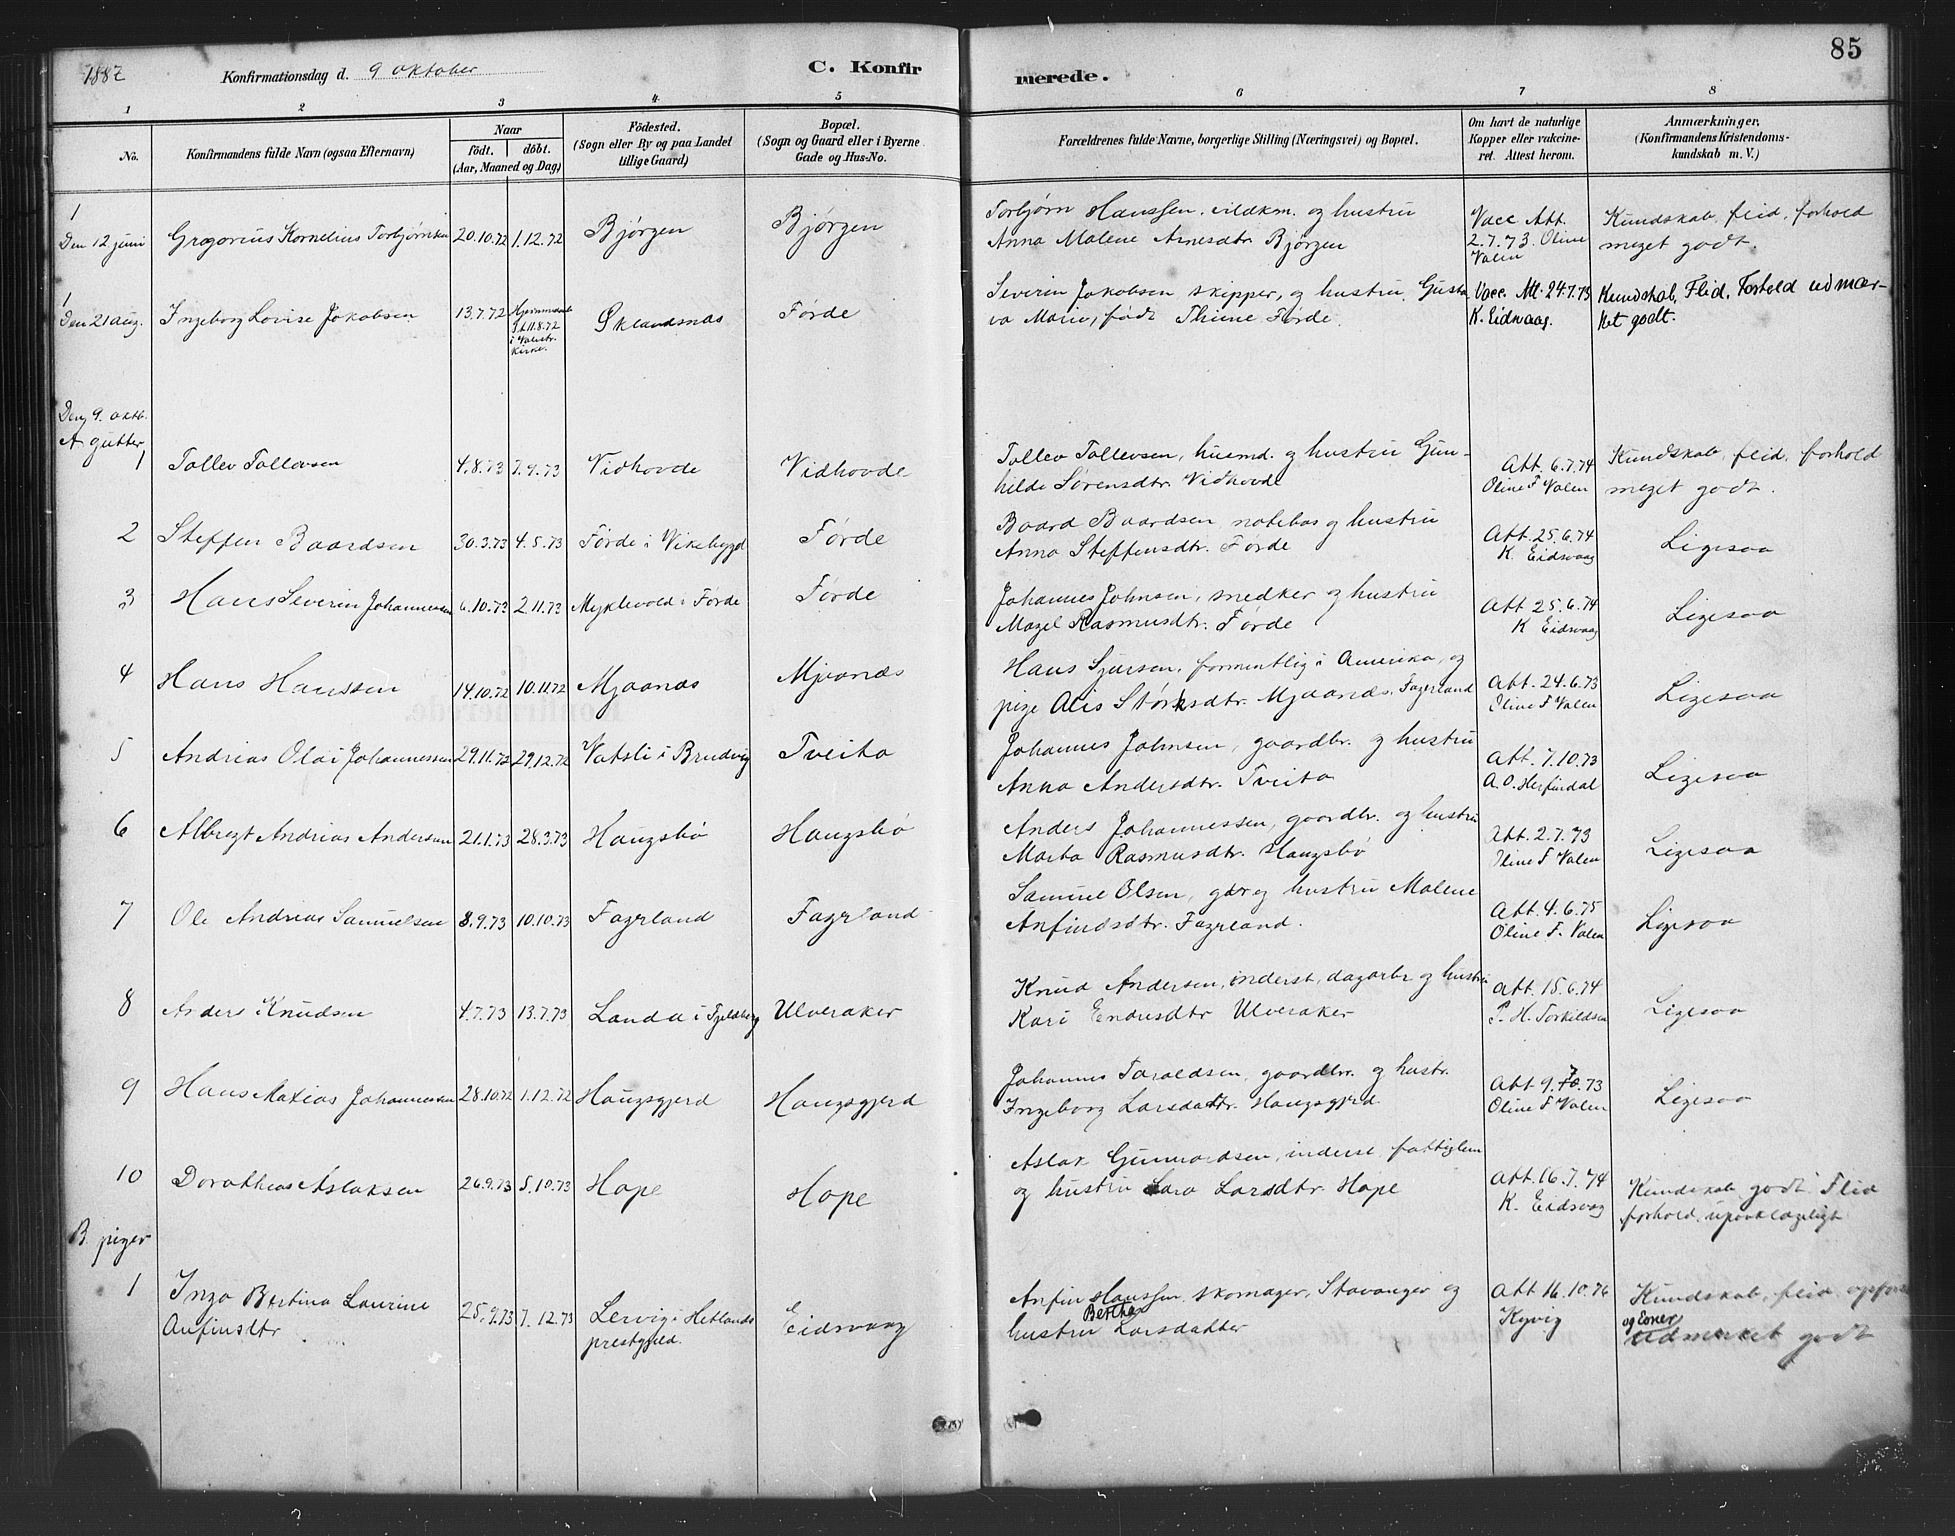 1887 Konfirmationsdag d. 9 oktober C. Konfirmerede. 85
1 2 3 4 5 6 7 8
No. Konfirmandens fulde Navn (ogsaa Efternavn) Naar födt. döbt. (Aar, Maaned og Dag) Födested. (Sogn eller By og paa Landet tillige Gaard) Bopæl. (Sogn og Gaard eller i Byerne Gade og Hus-No. Forældrenes fulde Navne, borgerlige Stilling (Næringsvei) og Bopæl. Om havt de naturlige Kopper eller vakcineret. Attest herom. Anmærkninger. (Konfirmandens Kristendomskundskab m. V.)
1
Den 12 juni Gregorius Kornelius Torbjørnsen 20.10.72 1.12.72 Bjørgen Bjørgen Torbjørn Hanssen. og hustru
Anna Malene Arnesdtr. Bjørgen Vacc Att. 2.7.73. Oline Valen Kundskab, flid, forhold
meget godt.
1
Den 21 aug. Ingeborg Lovise Jakobsen 13.7.72 Hjemmedøbt St. 11.8.72 i Valestr. Kirke. Sklandsnæs Førde Severin Jakobsen skipper, og hustru Gusta
va Marie, født Thime Førde. Vacc. Att. 24.7.73 K. Eidsvaag. Kundskab, Flid, Forhold udmær-
ket godt.
Den 9. oktb.
A gutter
1 Tollev Tollevsen 4.8.73 7.9.73 Vidhovde Vidhovde Tollev Tollevsen, huusmd. og hustru Gun-
hilde Sørensdtr. Vidhovde Att. 6.7.74 Oline F Valen Kundskab, flid, forhold
meget godt.
2 Steffen Baardsen 30.3.73 4.5.73 Førde i Vikebygd Førde Baard Baardsen, notebas og hustru
Anna Steffensdtr. Førde Att. 25.6.74 K. Eidsvaag Ligesaa
3 Hans Severin Johannessen 6.10.73 2.11.73 Myklevold i Førde Førde Johannes Johnsen, snedker og hustru
Magel Rasmusdtr. Førde Att 25.6.74 K Eidsvaag Ligesaa
4 Hans Hanssen 14.10.72 10.11.72 Mjaanæs Mjaanæs Hans Sjursen, formentlig i Amerika, og
pige Alis Størksdtr. Mjaanæs. Fagerland Att. 24.6.73 Oline F Valen Ligesaa
5 Andrias Olai Johannessen 29.11.72 29.12.72 Vatsli i Brudvig Tveita Johannes Johnsen, gaardbr. og hustru
Anna Andersdtr. Tveita Att. 7.10.73 A. O. Herfindal Ligesaa
6 Albregt Andrias Andersen 21.1.73 28.3.73 Haugsbø Haugsbø Anders Johannessen, gaardbr. og hustru
Marta Rasmusdtr. Haugsbø Att. 2.7.73 Oline F Valen Ligesaa
7 Ole Andrias Samuelsen 8.9.73 10.10.73 Fagrland Fagrland Samuel Olsen, gbr og hustru Malene
Anfindsdtr. Fagrland. Att. 4.6.75 Oline F. Valen Ligesaa
8 Anders Knudsen 4.7.73 13.7.73 Landa i Fjeldberg Ulveraker Knud Andersen, inderst, dagarbr og hustru
Kari Endresdtr Ulveraker Att. 15.6.74 P. H. Torkildsen Ligesaa
9 Hans Matias Johannessen 28.10.72 1.12.72 Haugsgjerd Haugsgjerd Johannes Taraldsen, gaardbr. og hustr.
Ingeborg Larsdattr. Haugsgjerd. Att 9.7.73 Oline F Valen Ligesaa
10 Dorotheas Aslaksen 26.9.73 5.10.73 Hope Hope Aslak Gunnardsen, inderst, fattiglem
og hustru Lara Larsdtr. Hope Att. 16.7.74 K. Eidsvaag Kundskab godt. Flid
forhold, upaaklageligt
B. piger
1 Inga Bertina Laurine
Anfinsdtr 25.9.73 7.12.73 Lervig i Hetlands
prestgjeld. Eidsvaag Anfin Hanssen skomager, Stavanger og
hustru Berthe Larsdatter Att 16.10.76 Kyvig Kundskab, flid,
og Evner udmerket godt